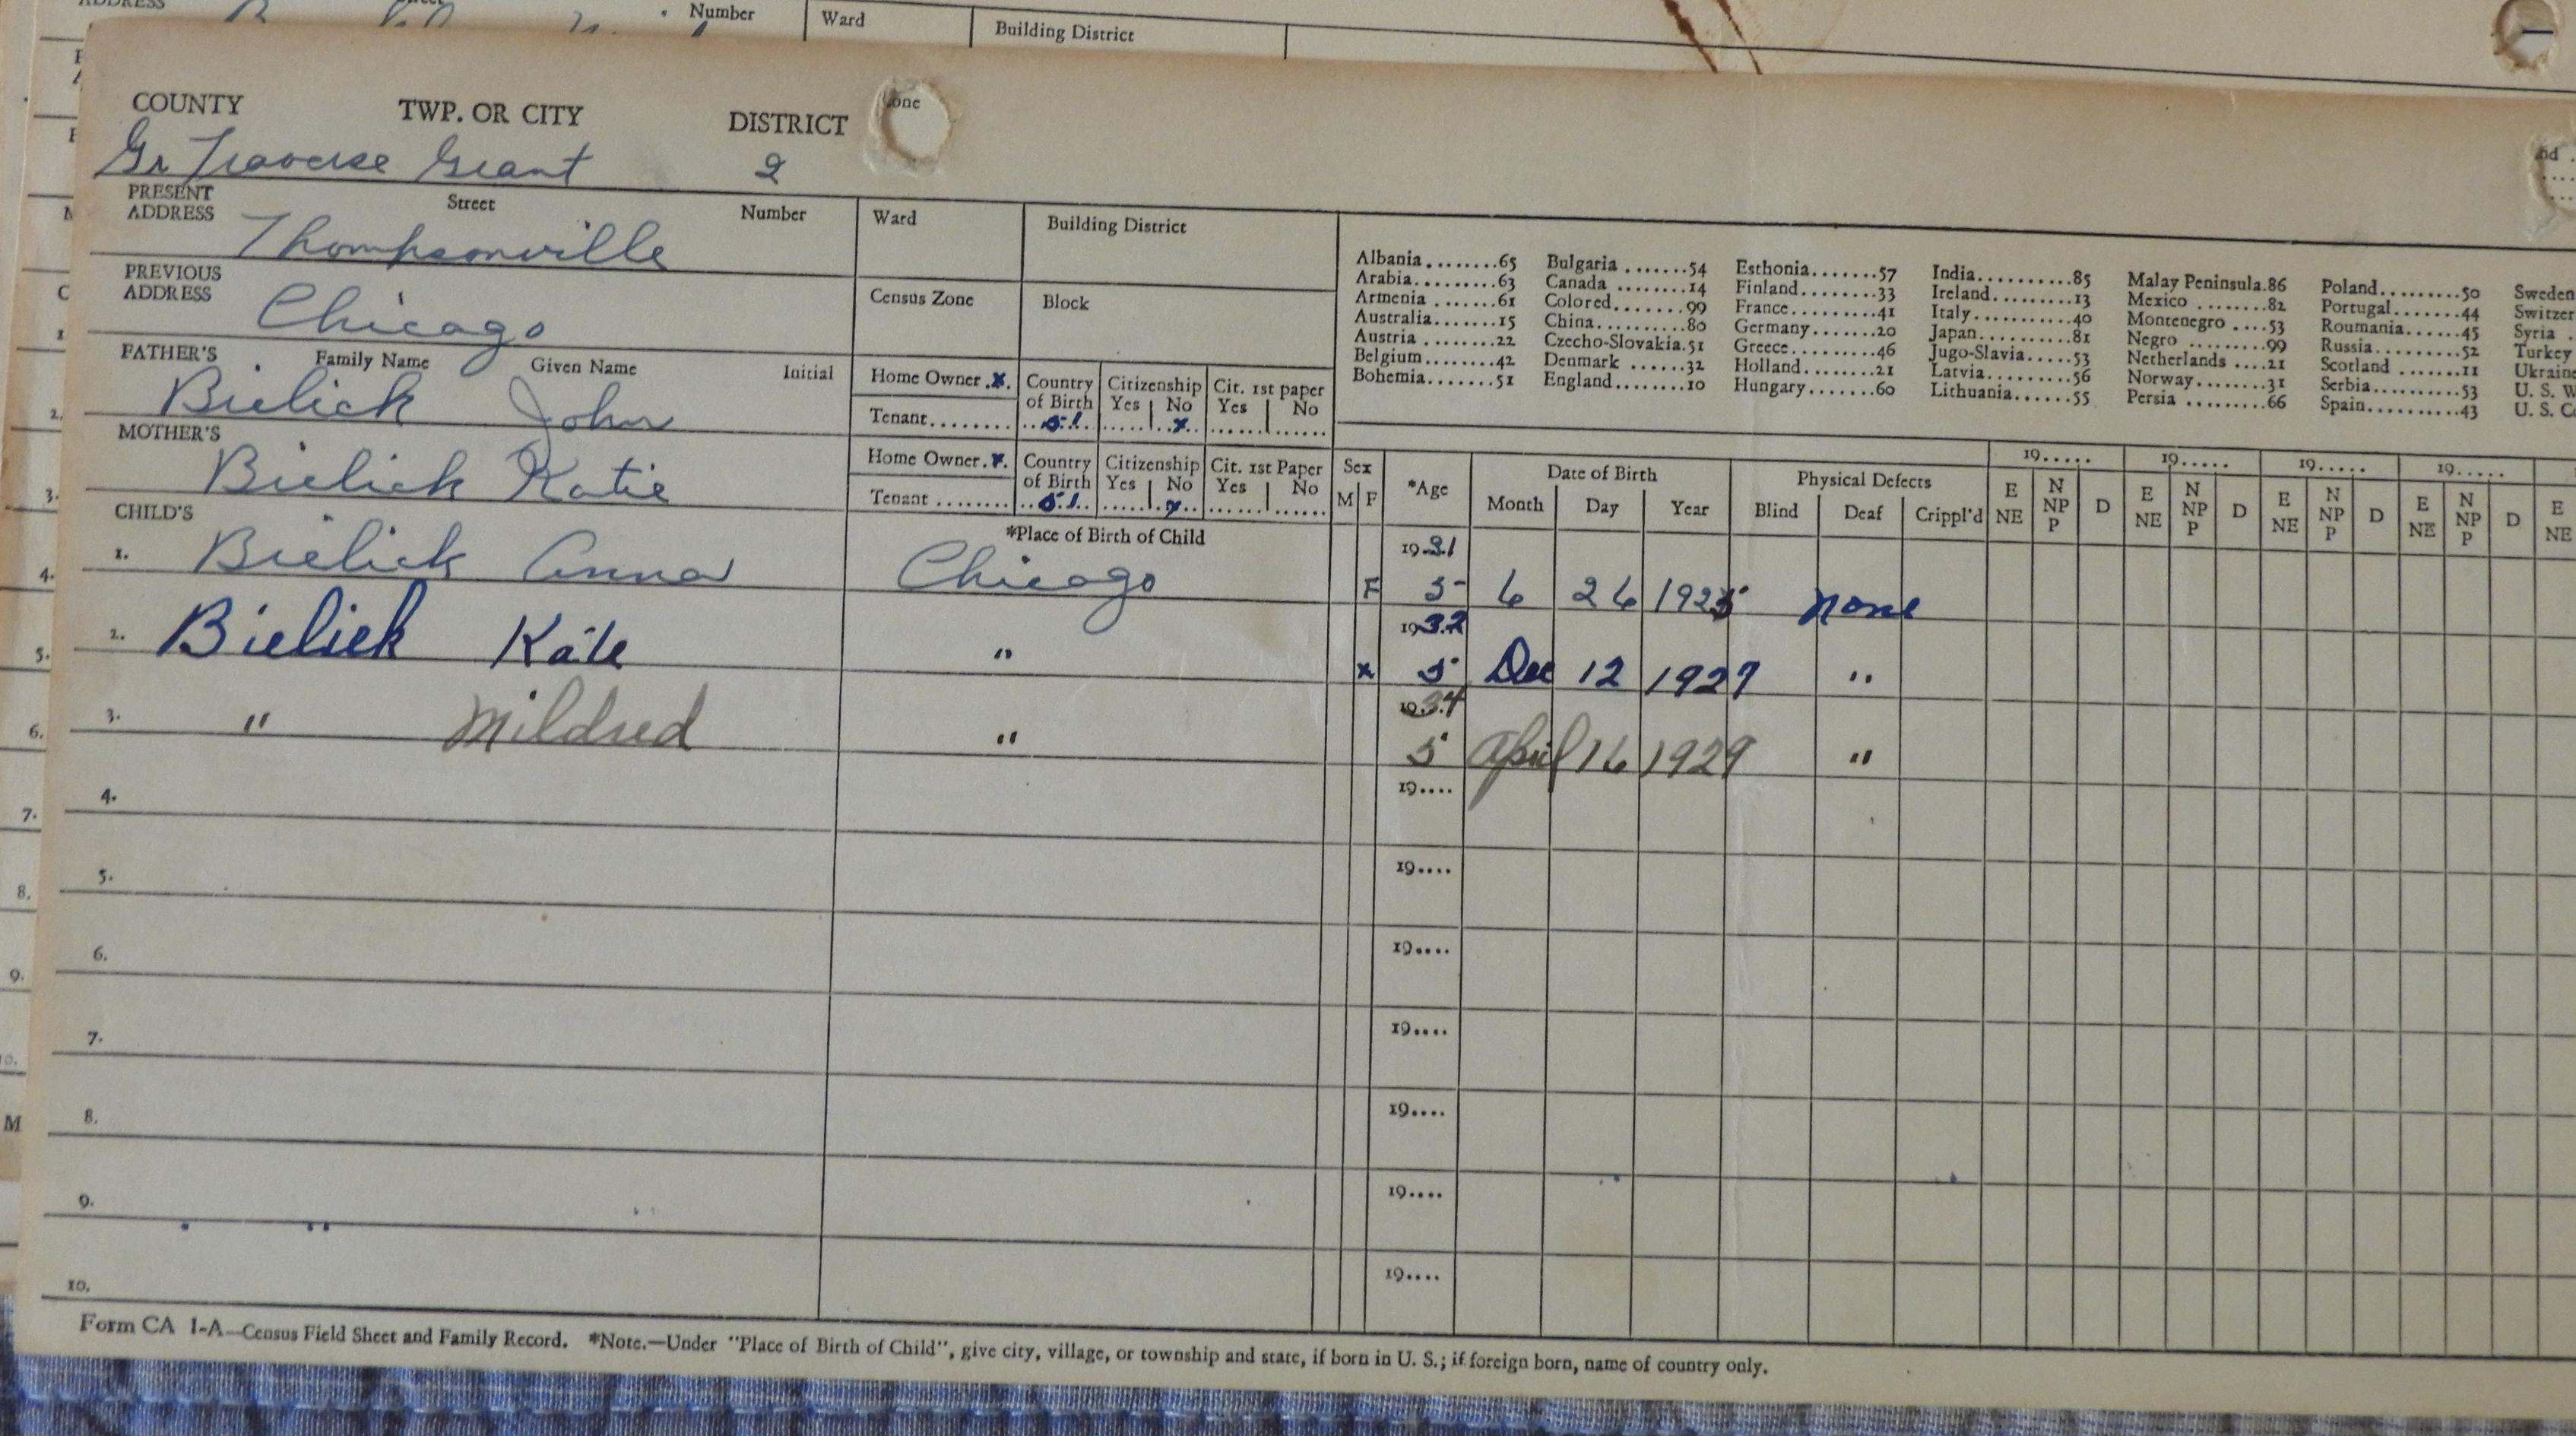 Number Ward Building District
COUNTY TWP. OR CITY DISTRICT one
Gr Traverse Grant 2
PRESENT ADDRESS Street Number Ward Building District
Thompsonville
PREVIOUS ADDRESS Census Zone Block
Chicago
Albania........65 Bulgaria.......54 Esthonia.......57 India..........85 Malay Peninsula.86 Poland.........50 Sweden
Arabia.........63 Canada ........14 Finland........33 Ireland........13 Mexico ........82 Portugal.......44 Switzer
Armenia .......61 Colored........99 France.........41 Italy..........40 Montenegro ....53 Roumania.......45 Syria
Australia......15 China..........80 Germany........20 Japan..........81 Negro .........99 Russia.........52 Turkey
Austria .......22 Czecho-Slovakia.51 Greece.........46 Jugo-Slavia....53 Netherlands ...21 Scotland ......11 Ukraine
Belgium........42 Denmark .......32 Holland........21 Latvia.........56 Norway.........31 Serbia.........53 U. S. W
Bohemia........51 England........10 Hungary........60 Lithuania......55 Persia ........66 Spain..........43 U. S. Co
FATHER'S Family Name Given Name Initial Home Owner.x. Country of Birth Citizenship Yes No Cit. 1st paper Yes No
Bielick John Tenant........ 51 x
MOTHER'S Home Owner.x. Country of Birth Citizenship Yes No Cit. 1st Paper Yes No
Bielick Katie Tenant ........ 51 x
Sex M F *Age Date of Birth Month Day Year Physical Defects Blind Deaf Crippl'd 19..... 19..... 19..... 19.....
E NE N NP P D E NE N NP P D E NE N NP P D E NE N NP P D E NE
CHILD'S *Place of Birth of Child
19 31
1. Bielick Anna Chicago F 5 6 26 1925 none
19 32
2. Bielick Kate " x 5 Dec 12 1927 "
19 34
3. " Mildred " 5 April 16 1929 "
4. 19....
5. 19....
6. 19....
7. 19....
8. 19....
9. 19....
10. 19....
Form CA 1-A—Census Field Sheet and Family Record. *Note.—Under "Place of Birth of Child", give city, village, or township and state, if born in U. S.; if foreign born, name of country only.